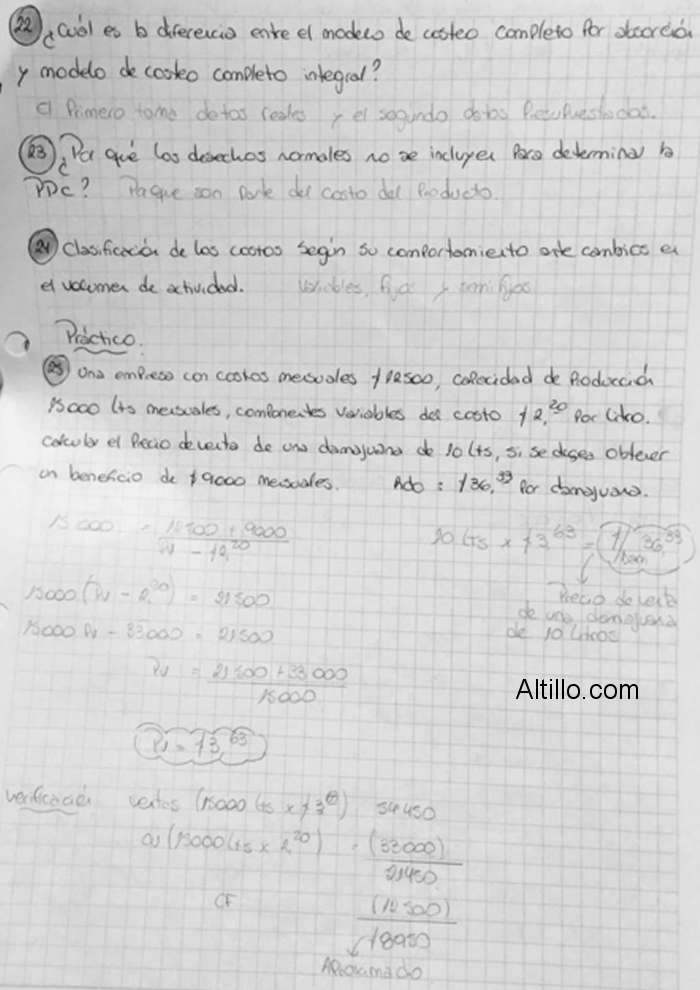 22 ¿Cuál es la diferencia entre el modelo de costeo completo por absorción
y modelo de costeo completo integral?
El Primero toma datos reales y el segundo datos Presupuestados.
23 ¿Por qué los desechos normales no se incluyen para determinar la
PDC? Porque son parte del costo del Producto.
24 Clasificación de los costos según su comportamiento ante cambios en
el volumen de actividad. Variables, fijos y semifijos
Práctico.
25 Una empresa con costos mensuales $12500, capacidad de Producción
15000 lts mensuales, componentes variables del costo $2,20 por litro.
Calcular el Precio de venta de una damajuana de 10 lts, si se desea obtener
un beneficio de $9000 mensuales. Rdo: $36,33 por damajuana.
15000 = 12500 + 9000
Pv - $2,20
10 lts x $3,63 = $ 36,33
/Dam
15000 (Pv - 2,20) = 21500
Precio de venta
de una damajuana
de 10 litros
15000 Pv - 33000 = 21500
Pv = 21500 + 33000
15000
Altillo.com
Pv = $3,63
Verificación Ventas (15000 lts x $3,63) 54450
CV (15000 lts x 2,20) = (33000)
21450
CF (12500)
$8950
Aproximado